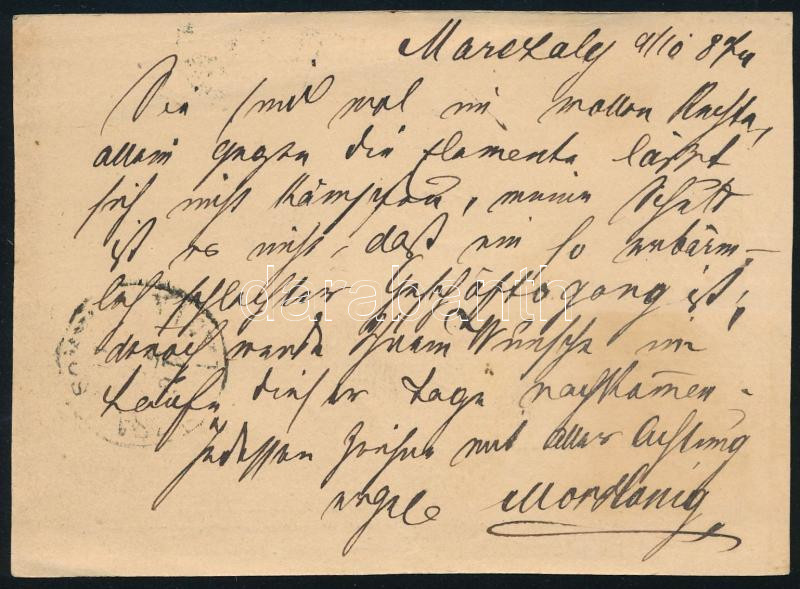 Marczaly 9/10 87
Sie sind wol im vollen Rechte,
allein gegen die Elemente lässt
sich nicht kämpfen, meine Schuld
ist es nicht, daß ein so erbärm-
lich schlechter Geschäftsgang ist,
danach werde Ihrem Wunsche im
Laufe dieser Tage nachkommen.
Indessen zeichne mit aller Achtung
ergebe
darabanth